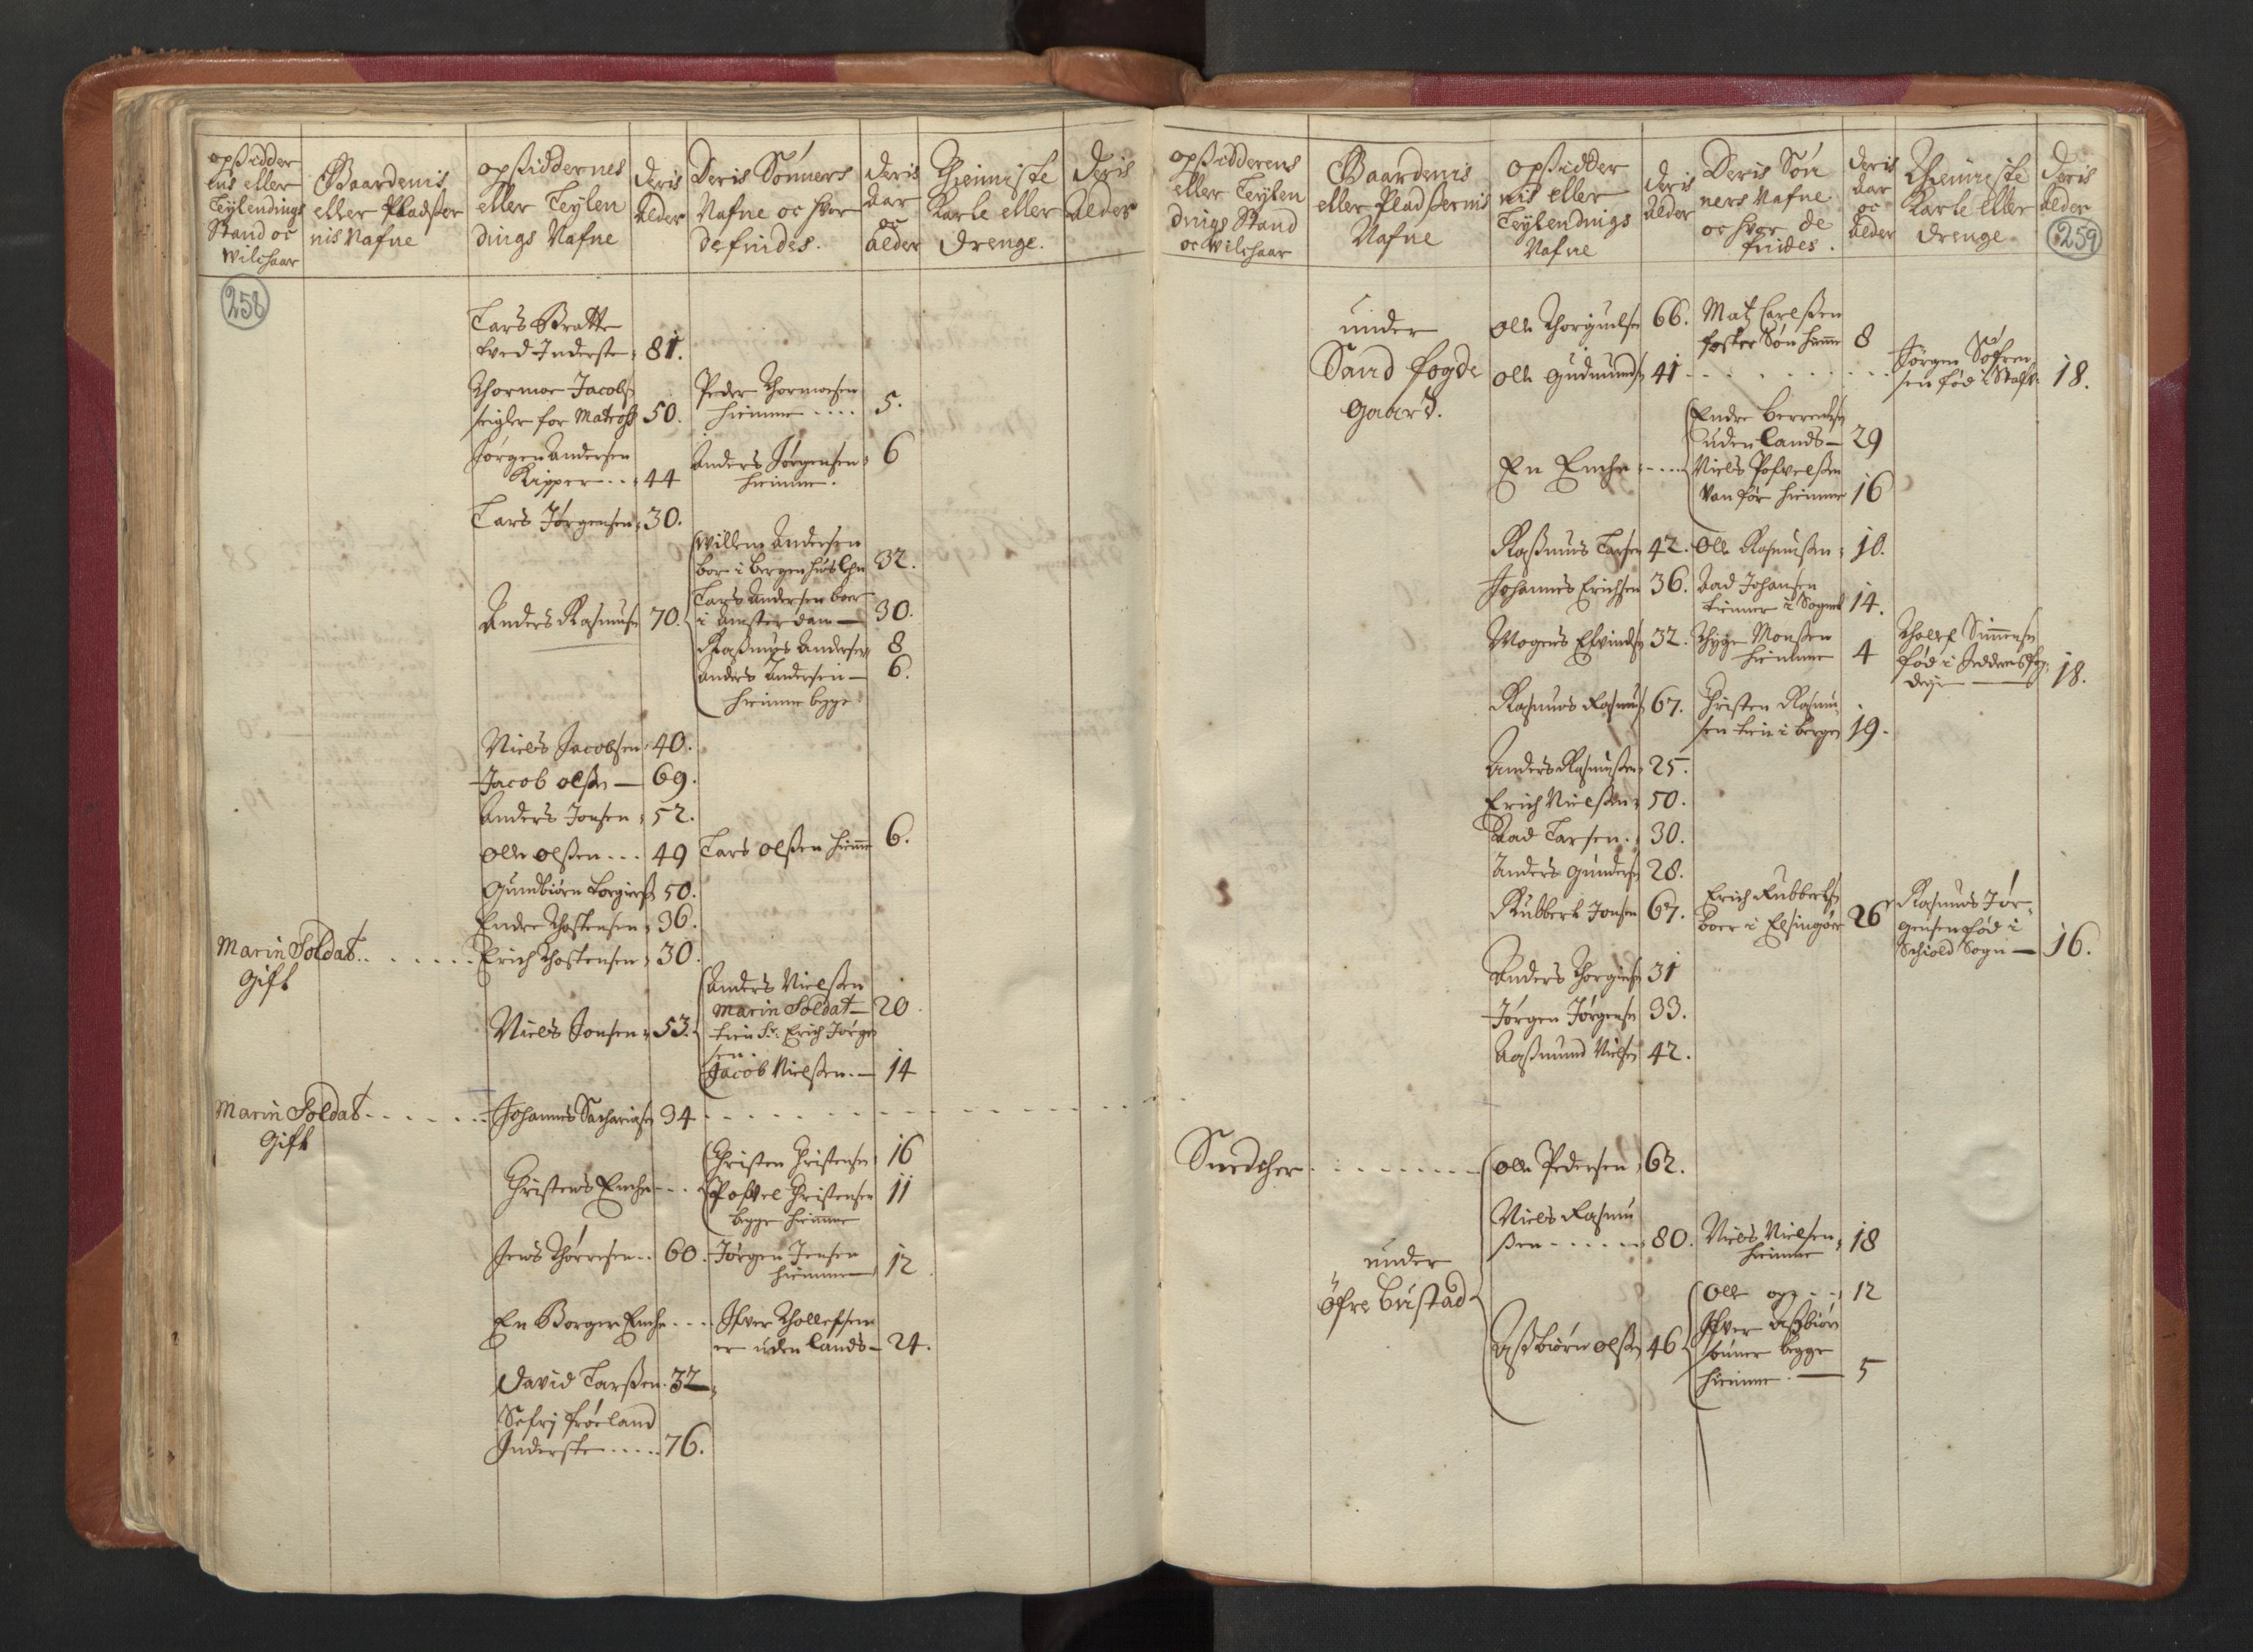 opsidder
ens eller
Leylendings
Stand oc
wilchaar
Gaardenis
eller Pladser
nis Nafne
opsiddernes
eller Leylen
dings Nafne
deris
Alder
Deris Sønners
Nafne oc hvor
de findes.
deris
Aar
oc
Alder
Thienniste
Karle eller
drenge.
deris
Alder
258
Lars Bratte
tved Inderste 81.
Thormoe Jacobs
seigler for Matros 50. Peder Thormoesen
hiemme .... 5.
Jørgen Andersen
Kipper .. 44 Anders Jørgensen 6
hiemme.
Lars Jørgensen 30.
Anders Rasmusen 70. Willem Andersen
boer i bergenhus Lehn 32.
Lars Andersen boer
i Amsterdam 30.
Rasmus Andersen 8
Anders Andersen 6.
hiemme begge
Niels Jacobsen 40.
Jacob olsen 69.
Anders Jonsen 52.
olle olsen ... 49 Lars olsen hiemme 6.
Gundbiørn 50.
Endre Thostensen 36.
Marin Soldat Erich Thostensen 30.
Gift
Niels Jonsen 53. Anders Nielsen
Marin Soldat 20
tien Sr. Erich Jørgen
sen.
Jacob Nielsen. 14
Marin Soldat Johannes Sachariasen 34
Gift
Christens Enche Christen Christensen 16
Pofvel Christensen 11
begge hiemme
Jens Thorresen .. 60. Jørgen Jensen
hiemme 12
En Borger Enche ... Ifver Thollefsen
er uden lands 24.
David Larsen. 32
Sefri frøeland
Inderste ..... 76.
opsidderens
eller Leylen
dings Stand
oc wilchaar
Gaardenis
eller Pladsernis
Nafne
opsidder
nis eller
Leylendings
Nafne
deris
Alder
Deris Søn
ners Nafne
oc hvor de
findes.
deris
Aar
oc
Alder
Thienniste
Karle eller
drenge
deris
Alder
259
under
Sand fogde
gaard.
olle Thorgiuelsen 66. Matz Carlsen
foster Søn hiemme 8
olle Gudmundsen 41 Jørgen Søfren
sen fød i 18.
En Enche Endre Berrentsen
uden lands 29
Niels Pofvelsen
van før hiemme 16
Rasmus Larsen 42. olle Rasmusen 10.
Johannes Erichsen 36. Aad Johansen
tienner i Sognet 14.
Mogens Eivindsen 32. Thyge Monsen
hiemme 4 Tholef Simmensen
fød i Jedderens fog
derje 18.
Rasmus Rasmusen 67. Christen Rasmu
sen tien i bergen 19.
Anders Rasmusen 25.
Erich Nielsen 50.
Aad Larsen 30.
Anders Gundersen 28.
Rubbert Jonsen 67. Erich Rubbertsen
boer i Elsingør 26 Rasmus Jør
gensen fød i
Schiold Sogn 16.
Anders Thorgiersen 31
Jørgen Jørgensen 33.
Aasmund Nielsen 42.
Snedcher olle Pedersen 62.
under
Øfre Bristad
Niels Rasmu
sen 80. Niels Nielsen 18
hiemme
Asbiørn olsen 46 olle og 12
Ifver Asbiørn
sønner begge
hiemme. 5